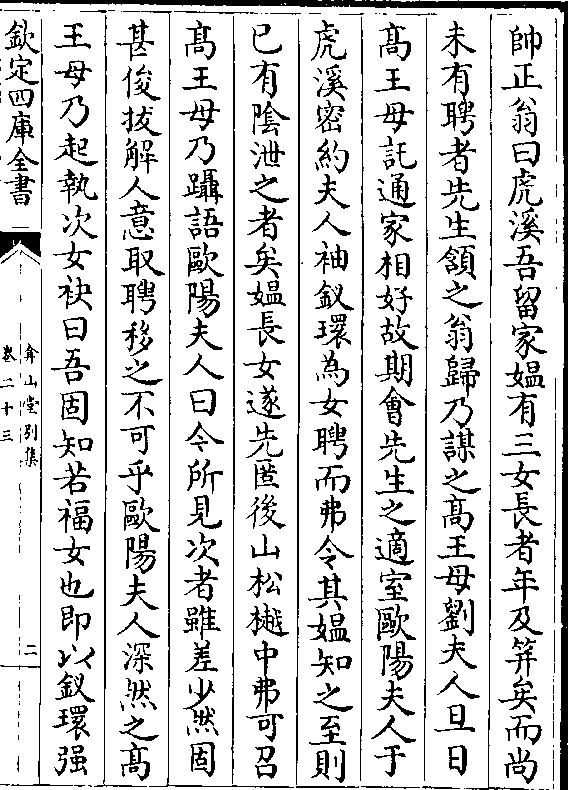 帥正翁曰虎溪吾留家媪有三女長者年及笄矣而尚
未有聘者先生頷之翁歸乃謀之髙王母劉夫人旦日
髙王母託通家相好故期會先生之適室歐陽夫人于
虎溪密約夫人袖釵環為女聘而弗令其媪知之至則
已有陰泄之者矣媪長女遂先匿後山松樾中弗可召
髙王母乃躡語歐陽夫人曰今所見次者雖差少然固
甚俊拔解人意取聘移之不可乎歐陽夫人深然之髙
王母乃起執次女袂曰吾固知若福女也即以釵環强
欽定四庫全書
弇山堂别集
卷二十三
二